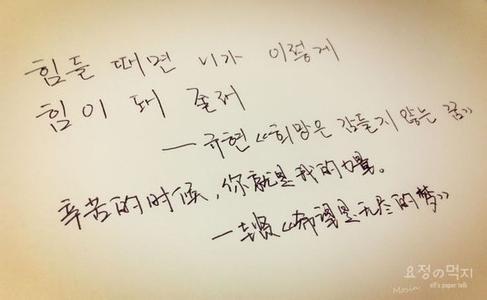 힘들 때면 니가 이렇게
힘이 돼 줄래
—규현《희망은 잠들지 않는 꿈》
辛苦的时候，你就是我的力量。
—圭贤《希望是无尽的梦》
요정の먹지
Mosin
elf's paper talk